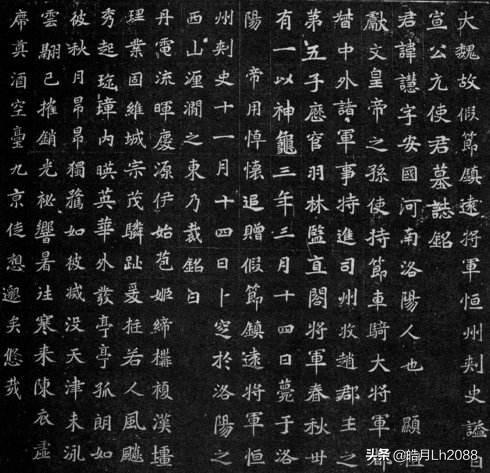 大魏故假節鎮遠將軍恒州刺史謚曰
宣公元使君墓誌銘
君諱譿字安國河南洛陽人也 顯祖
獻文皇帝之孫使持節車騎大將軍都
督中外諸軍事特進司州牧趙郡王之
第五子歷官羽林監直閤將軍春秋卅
有一以神龜三年三月十四日薨于洛
陽 帝用悼懷追贈假節鎮遠將軍恒
州刺史十一月十四日卜窆於洛陽之
西山瀍澗之東乃裁銘曰
丹電流暉慶源伊始苞姬締構複漢壃
理業固維城宗茂麟趾爰挺若人風飈
秀起琁璋內暎英華外發亭亭孤朗如
彼秋月昂昂獨騖如彼滅没天津未泳
雲翮已摧銷光祕響暑往寒来陳衣虛
席奠酒空臺九京徒想邈矣悠哉
头条 @皓月Lh2088